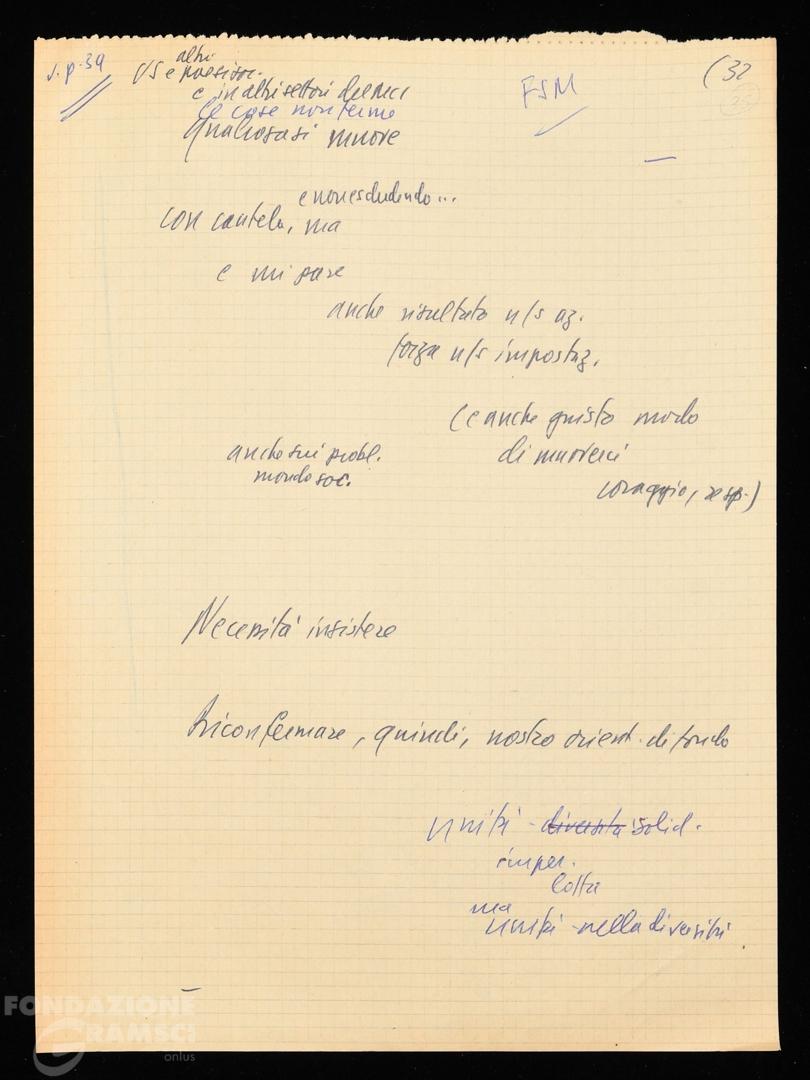 v. p. 39
(32
FSM
altri
US e paesi soc.
e in altri settori del MCI
le cose non ferme
Qualcosa si muove
e non escludendo...
con cautela, ma
e mi pare
anche risultato n/s az.
forza n/s impostaz.
(e anche giusto modo
di muoverci
coraggio, resp.)
anche sui probl.
mondo soc.
Necessità insistere
Riconfermare, quindi, nostro orient. di fondo
unità - diversità solid.
imper.
lotta
ma
unità nella diversità
FONDAZIONE
GRAMSCI
onlus